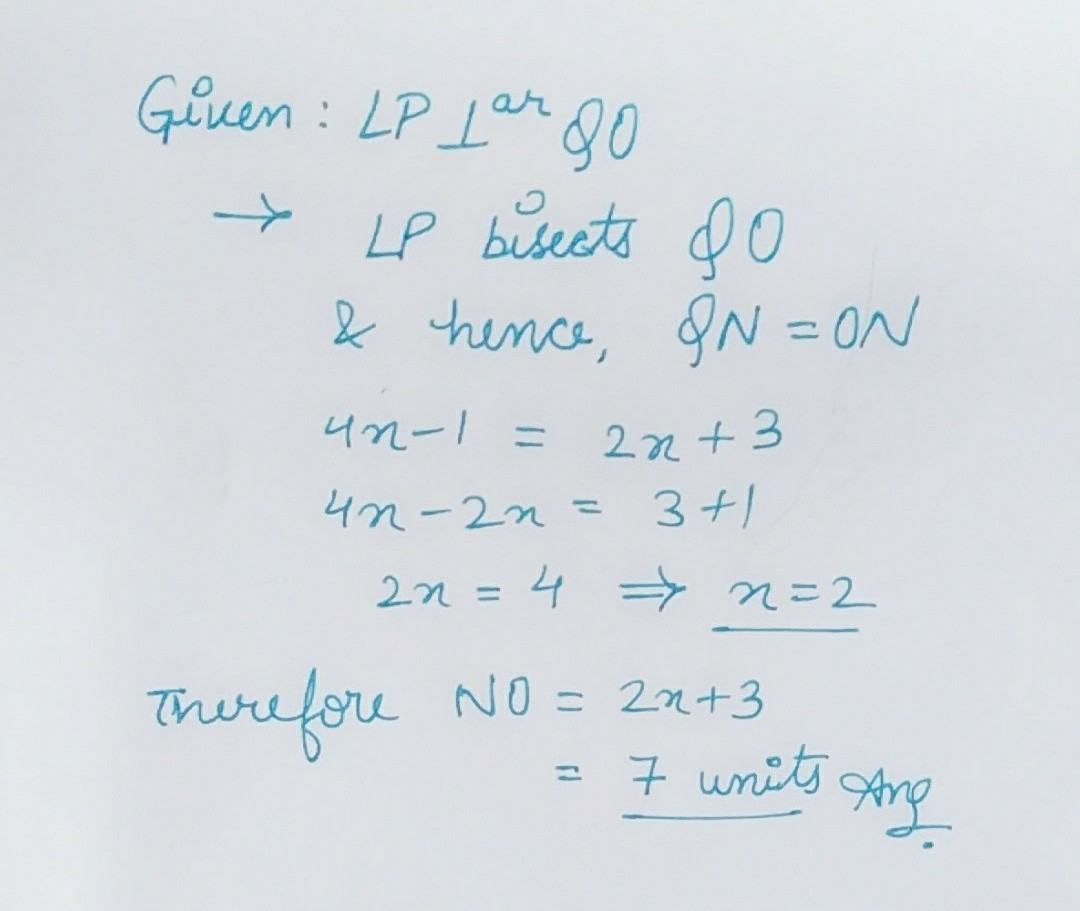 Given : LP ⊥ar QO
→ LP bisects QO
& hence, QN = ON
4x-1 = 2x+3
4x-2x = 3+1
2x = 4 ⇒ x=2
Therefore NO = 2x+3
= 7 units Ans.